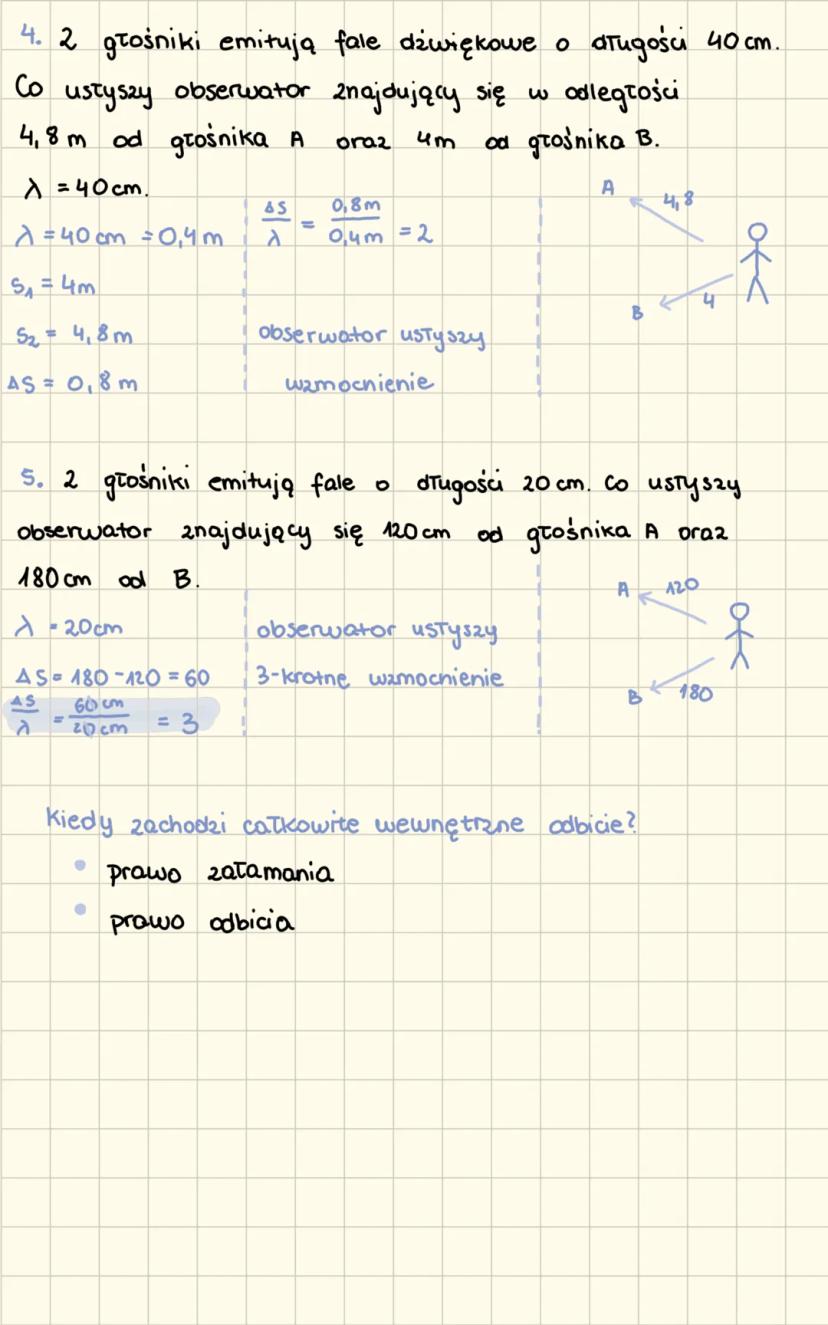 4. 2 głośniki emitują fale dźwiękowe o długości 40 cm.
Co usłyszy obserwator znajdujący się w odległości
4,8 m od głośnika A oraz 4m od głośnika B.
λ = 40 cm.
λ = 40 cm = 0,4 m
S₁ = 4m
S₂ = 4,8 m
ΔS = 0,8 m
ΔS/λ = 0,8 m/0,4 m = 2
obserwator usłyszy
wzmocnienie
A 4,8
B 4
5. 2 głośniki emitują fale o długości 20 cm. Co usłyszy
obserwator znajdujący się 120 cm od głośnika A oraz
180 cm od B.
λ = 20cm
ΔS = 180 - 120 = 60
ΔS/λ = 60 cm/20 cm = 3
obserwator usłyszy
3-krotne wzmocnienie
A 120
B 180
Kiedy zachodzi całkowite wewnętrzne odbicie?
• prawo załamania
• prawo odbicia